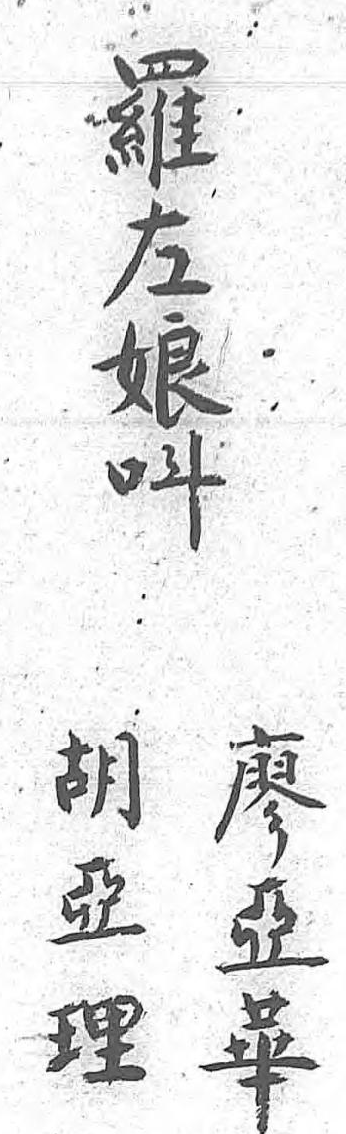 羅左娘呌
廖亞華
胡亞理